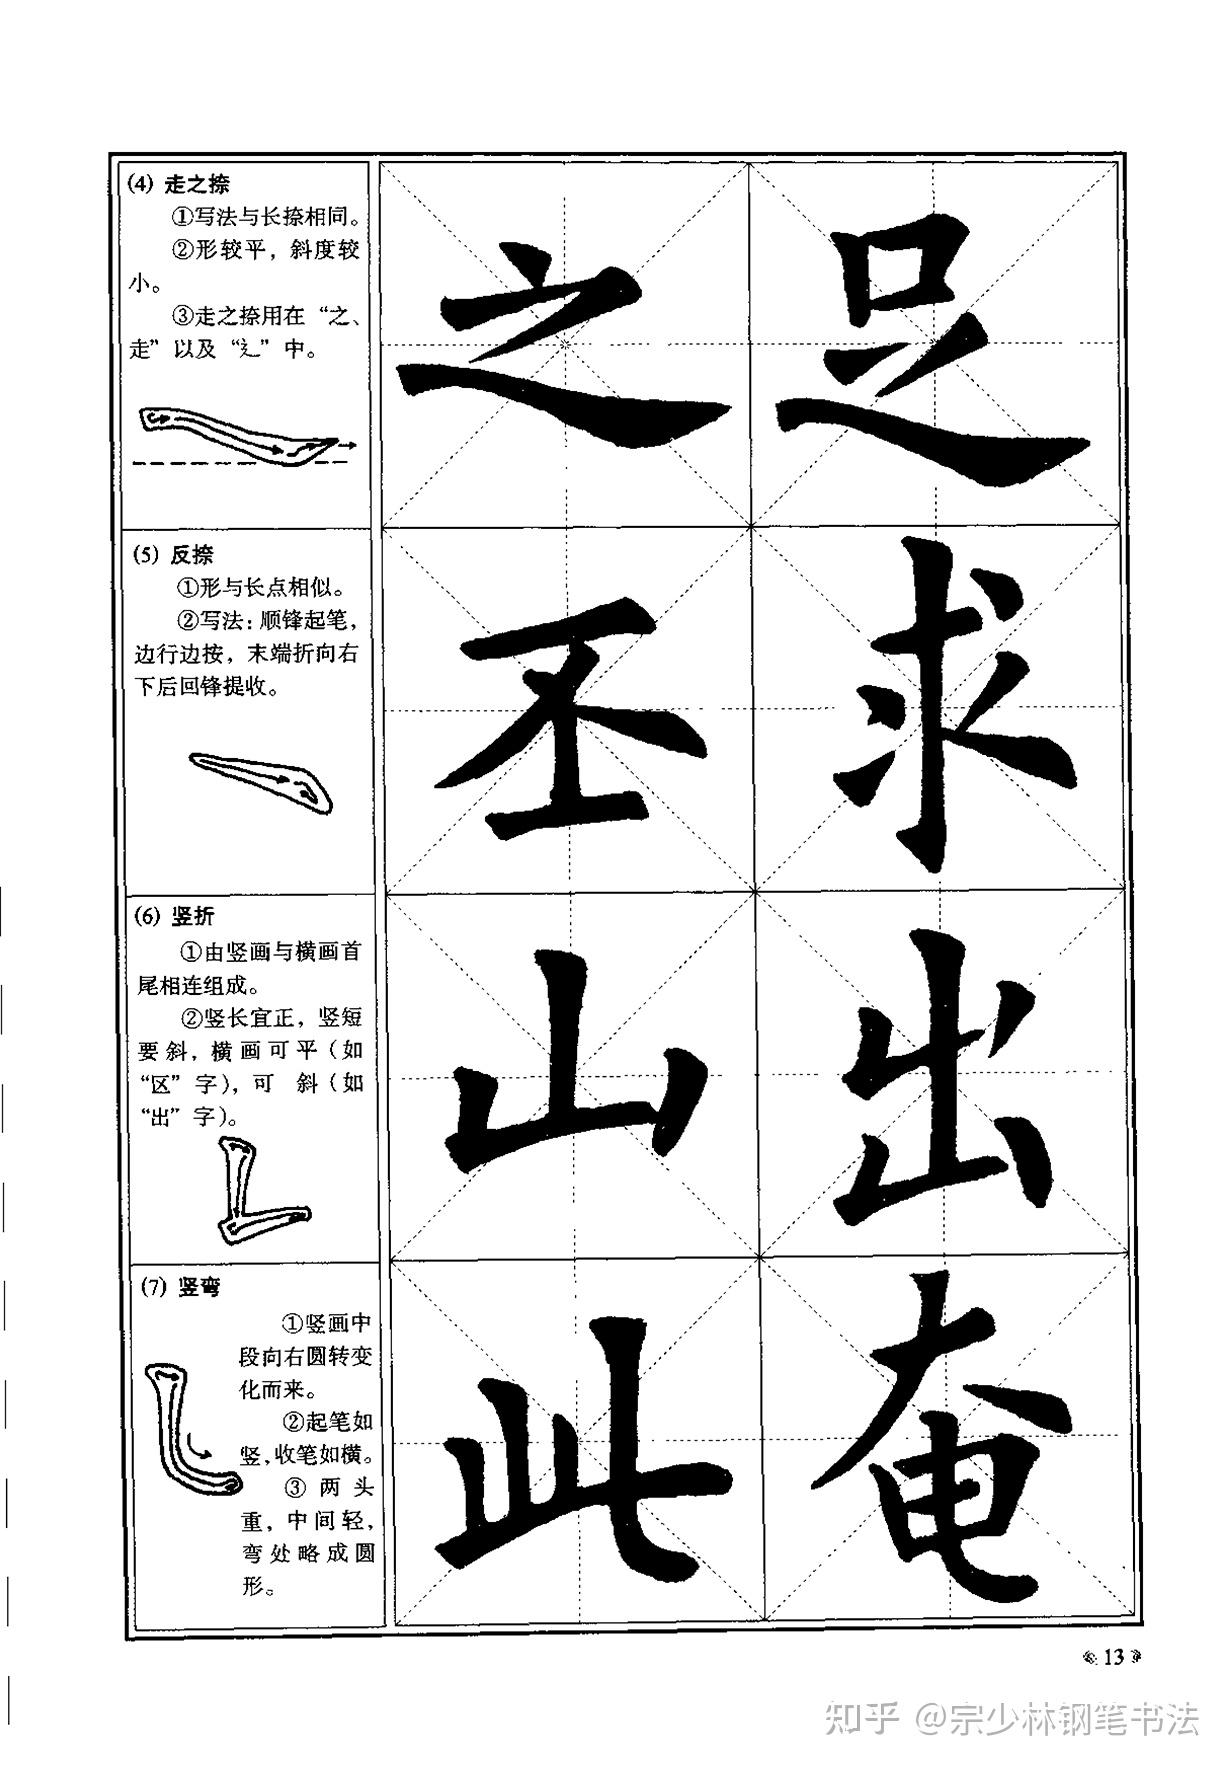 (4) 走之捺
①写法与长捺相同。
②形较平，斜度较
小。
③走之捺用在“之、
走”以及“辶”中。
之 足
(5) 反捺
①形与长点相似。
②写法：顺锋起笔，
边行边按，末端折向右
下后回锋提收。
丕 求
(6) 竖折
①由竖画与横画首
尾相连组成。
②竖长宜正，竖短
要斜，横画可平（如
“区”字），可 斜（如
“出”字）。
山 出
(7) 竖弯
①竖画中
段向右圆转变
化而来。
②起笔如
竖，收笔如横。
③两头
重，中间轻，
弯处略成圆
形。
此 奄
13
知乎 @宗少林钢笔书法